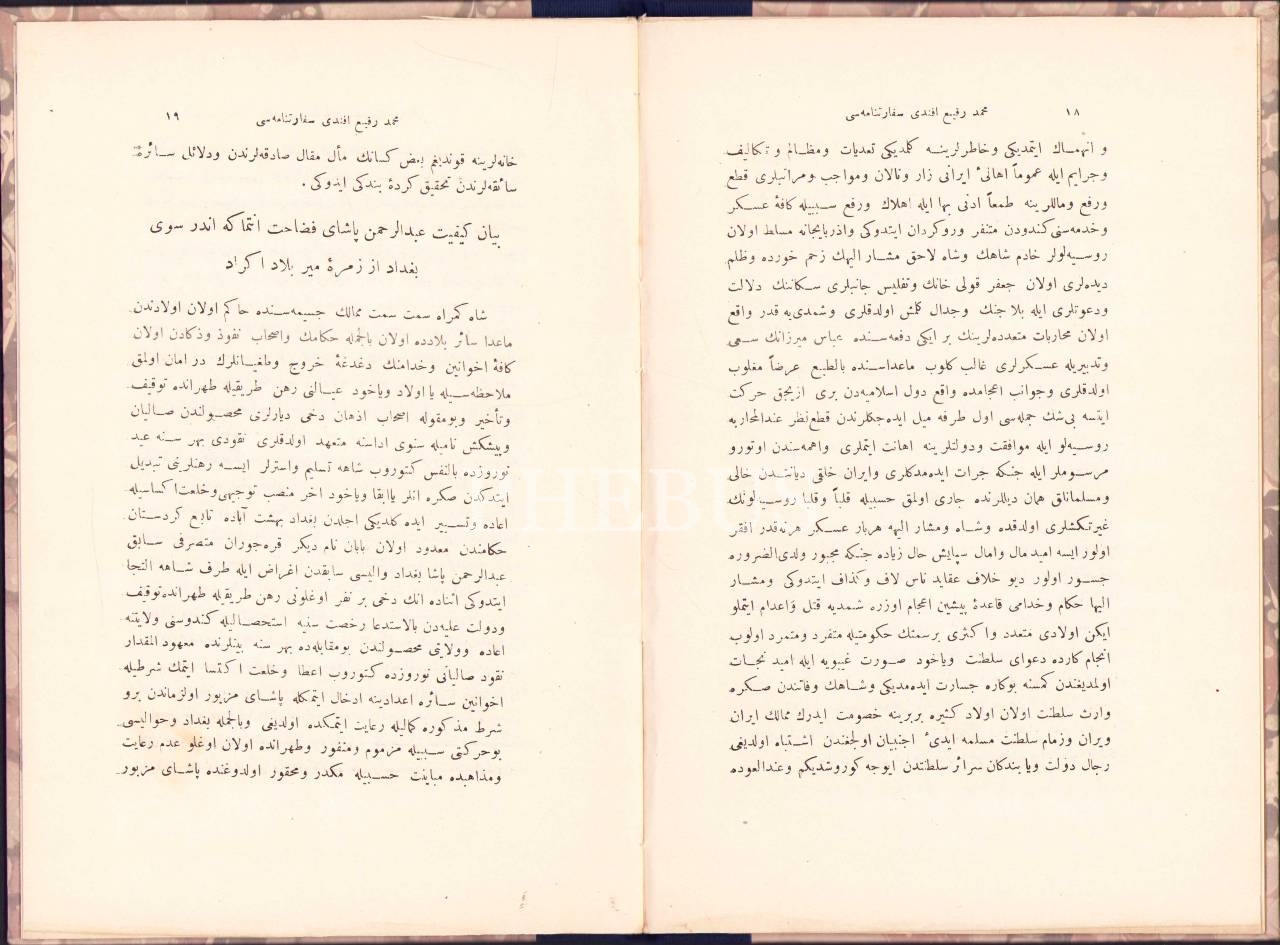 ١٨ محمد رفيع افندى سفارتنامه‌سى
و انهماك ايتمديكى وخاطرلرينه كلمديكى تعديات ومظالم و تكاليف
وجرايم ايله عموماً اهالىٔ ايرانى زار ونالان ومواجب ومراتبلرى قطع
ورفع وماللرينه طمعاً ادنى بها ايله اهلاك ورفع سببيله كافهٔ عسكر
وخدمه‌سنى كندودن متنفر وروكردان ايتدوكى واذربايجانه مسلط اولان
روسيه‌لولر خادم شاهك وشاه لاحق مشار اليهك زخم خورده وظلم
ديده‌لرى اولان جعفر قولى خانك وتفليس جانبلرى سكاننك دلالت
ودعوتلرى ايله بلا جنك وجدال كلمش اولدقلرى وشمدى‌يه قدر واقع
اولان محاربات متعدده‌لرينك بر ايكى دفعه‌سنده عباس ميرزانك سعى
وتدبيريله عسكرلرى غالب كلوب ماعداسنده بالطبع عرضاً مغلوب
اولدقلرى وجوانب اعجامده واقع دول اسلاميه‌دن برى ازيجق حركت
ايتسه بى‌شك جمله‌سى اول طرفه ميل ايده‌جكلرندن قطع‌نظر عندالمحاربه
روسيه‌لو ايله موافقت ودولتلرينه اهانت ايتملرى واهمه‌سندن اوتورو
مرسوملر ايله جنكه جرات ايده‌مدكلرى وايران خلقى ديانتدن خالى
ومسلمانلق همان ديللرنده جارى اولمق حسبيله قلباً وقلبا روسيه‌لونك
غيرتكشلرى اولدقده وشاه ومشار اليهه هربار عسكر هرنه‌قدر افقر
اولور ايسه اميد مال وامال سپايش حال زياده جنكه مجبور ولدى‌الضروره
جسور اولور ديو خلاف عقايد ناس لاف وكذاف ايتدوكى ومشار
اليها حكام وخدامى قاعدهٔ پيشين اعجام اوزره شمديه قتل واعدام ايتملو
ايكن اولادى متعدد واكثرى برسمتك حكومتيله منفرد ومتمرد اولوب
انجام كارده دعواى سلطنت وياخود صورت غيبويه ايله اميد نجات
اولمديغندن كمسنه بوكاره جسارت ايده‌مديكى وشاهك وفاتندن صكره
وارث سلطنت اولان اولاد كثيره بربرينه خصومت ايدرك ممالك ايران
ويران وزمام سلطنت مسلمه ايدىٔ اجنبيان اولجغندن اشتباه اولديغى
رجال دولت ويا بندكان سرائر سلطنتدن ايوجه كوروشديكم وعندالعوده
محمد رفيع افندى سفارتنامه‌سى ١٩
خانه‌لرينه قوندیغم بعض كسانك مأل مقال صادقه‌لرندن ودلائل سائرهٔ
سائقه‌لرندن تحقيق كردهٔ بندكى ايدوكى .
بيان كيفيت عبدالرحمن پاشاى فضاحت انتما كه اندر سوى
بغداد از زمرهٔ مير بلاد اكراد
شاه كمراه سمت سمت ممالك جسيمه‌سنده حاكم اولان اولادندن
ماعدا سائر بلادده اولان بالجمله حكامك واصحاب نفوذ وذكادن اولان
كافهٔ اخوانين وخدامنك دغدغهٔ خروج وطغيانلرك در امان اولمق
ملاحظه‌سيله يا اولاد وياخود عيالنى رهن طريقيله طهرانده توقيف
وتأخير وبومقوله اصحاب اذهان دخى ديارلرى محصولندن صاليان
وپيشكش ناميله سنوى اداسنه متعهد اولدقلرى نقودى بهر سنه عيد
نوروزده بالنفس كتوروب شاهه تسليم واسترلر ايسه رهنلرنى تبديل
ايتدكدن صكره انلر ياابقا وياخود اخر منصب توجيهى وخلعت اكساسيله
اعاده وتسيير ايده كلديكى اجلدن بغداد بهشت آباده تابع كردستان
حكامندن معدود اولان بابان نام ديكر قره‌جوران متصرفى سابق
عبدالرحمن پاشا بغداد واليسى سابقدن اغراض ايله طرف شاهه التجا
ايتدوكى اثناده انك دخى بر نفر اوغلونى رهن طريقيله طهرانده توقيف
ودولت عليه‌دن بالاستدعا رخصت سنيه استحصاليله كندوسنى ولايتنه
اعاده وولايتى محصولندن بومقابله‌ده بهر سنه بينلرنده معهود المقدار
نقود صاليانى نوروزده كتوروب اعطا وخلعت اكتسا ايتمك شرطيله
اخوانين سائره اعدادينه ادخال ايتمكله پاشاى مزبور اولزماندن برو
شرط مذكوره كماليله رعايت ايتمكده اولديغى وبالجمله بغداد وحواليسى
بوحركتى سببيله مزموم ومنفور وطهرانده اولان اوغلو عدم رعايت
ومذاهبده مباينت حسبيله مكدر ومحقور اولدوغنده پاشاى مزبور
PHEBUS